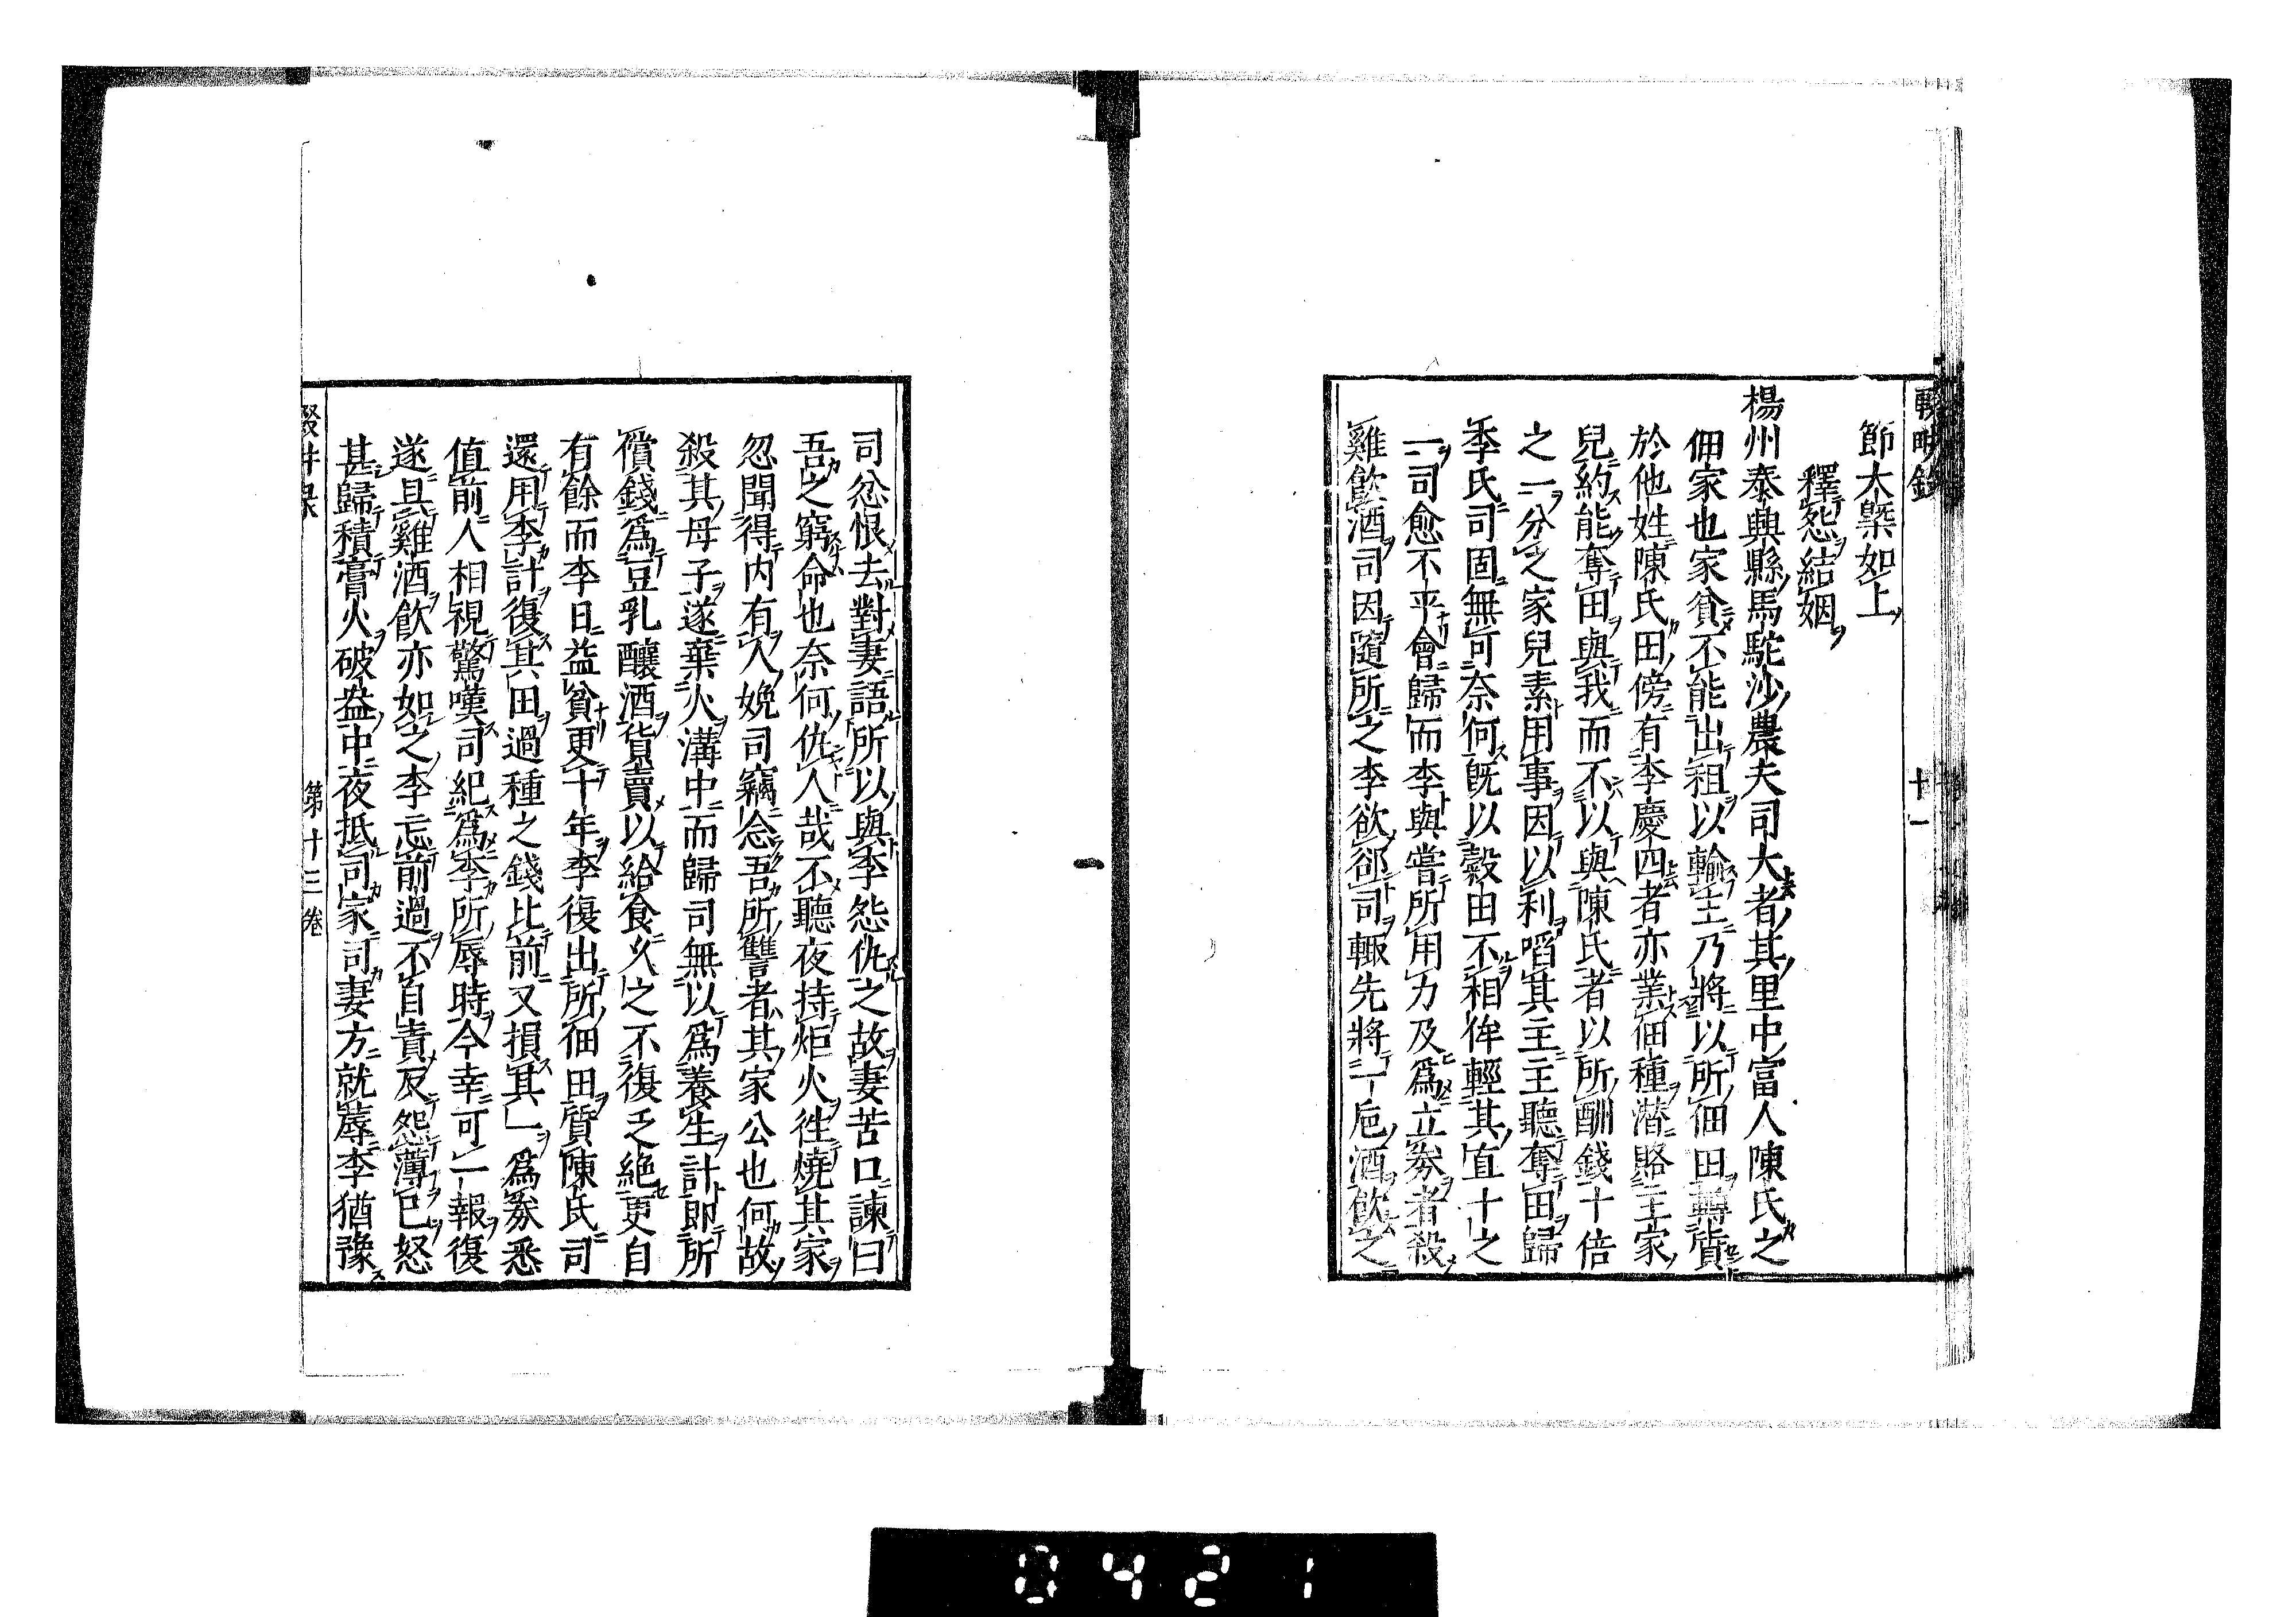 節大槩如上
釋怨結姻
楊州泰興縣馬駝沙農夫司大者其里中富人陳氏之
佃家也家貧不能出租以輸主乃將以所佃田轉質
於他姓陳氏田傍有李慶四者亦業佃種潛賂主家
兒約能奪田與我而不以與陳氏者以所酬錢十倍
之一分之家兒素用事因以利啗其主主聽奪田歸
李氏司固無可奈何旣以穀由不相侔輕其直十之
二司愈不平會歸而李與嘗所用力及爲立券者殺
雞飮酒司因隨所之李欲郤司輙先將一巵酒飮之
十一
司忿恨去對妻語所以與李怨仇之故妻苦口諫曰
吾之窮命也奈何仇人哉不聽夜持炬火徃燒其家
忽聞得内有人娩司竊念吾所讐者其家公也何故
殺其母子遂棄火溝中而歸司無以爲養生計即所
償錢爲豆乳釀酒貨賣以給食久之不復乏絶更自
有餘而李日益貧更十年李復出所佃田質陳氏司
還用李計復其田過種之錢比前又損其一爲券悉
値前人相視驚嘆司紀爲李所辱時今幸可一報復
遂具雞酒飮亦如之李忘前過不自責反怨薄已怒
甚歸積膏火破盎中夜抵司家司妻方就蓐李猶豫
第十三卷